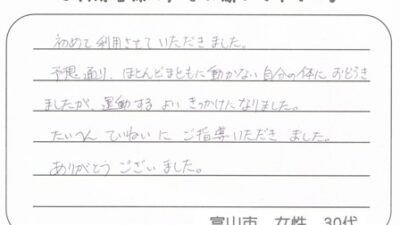 初めて利用させていただきました。
予想通り、ほとんどまともに動かない自分の体におどろき
ましたが、運動するよいきっかけになりました。
たいへんていねいにご指導いただきました。
ありがとうございました。
富山市 女性 30代